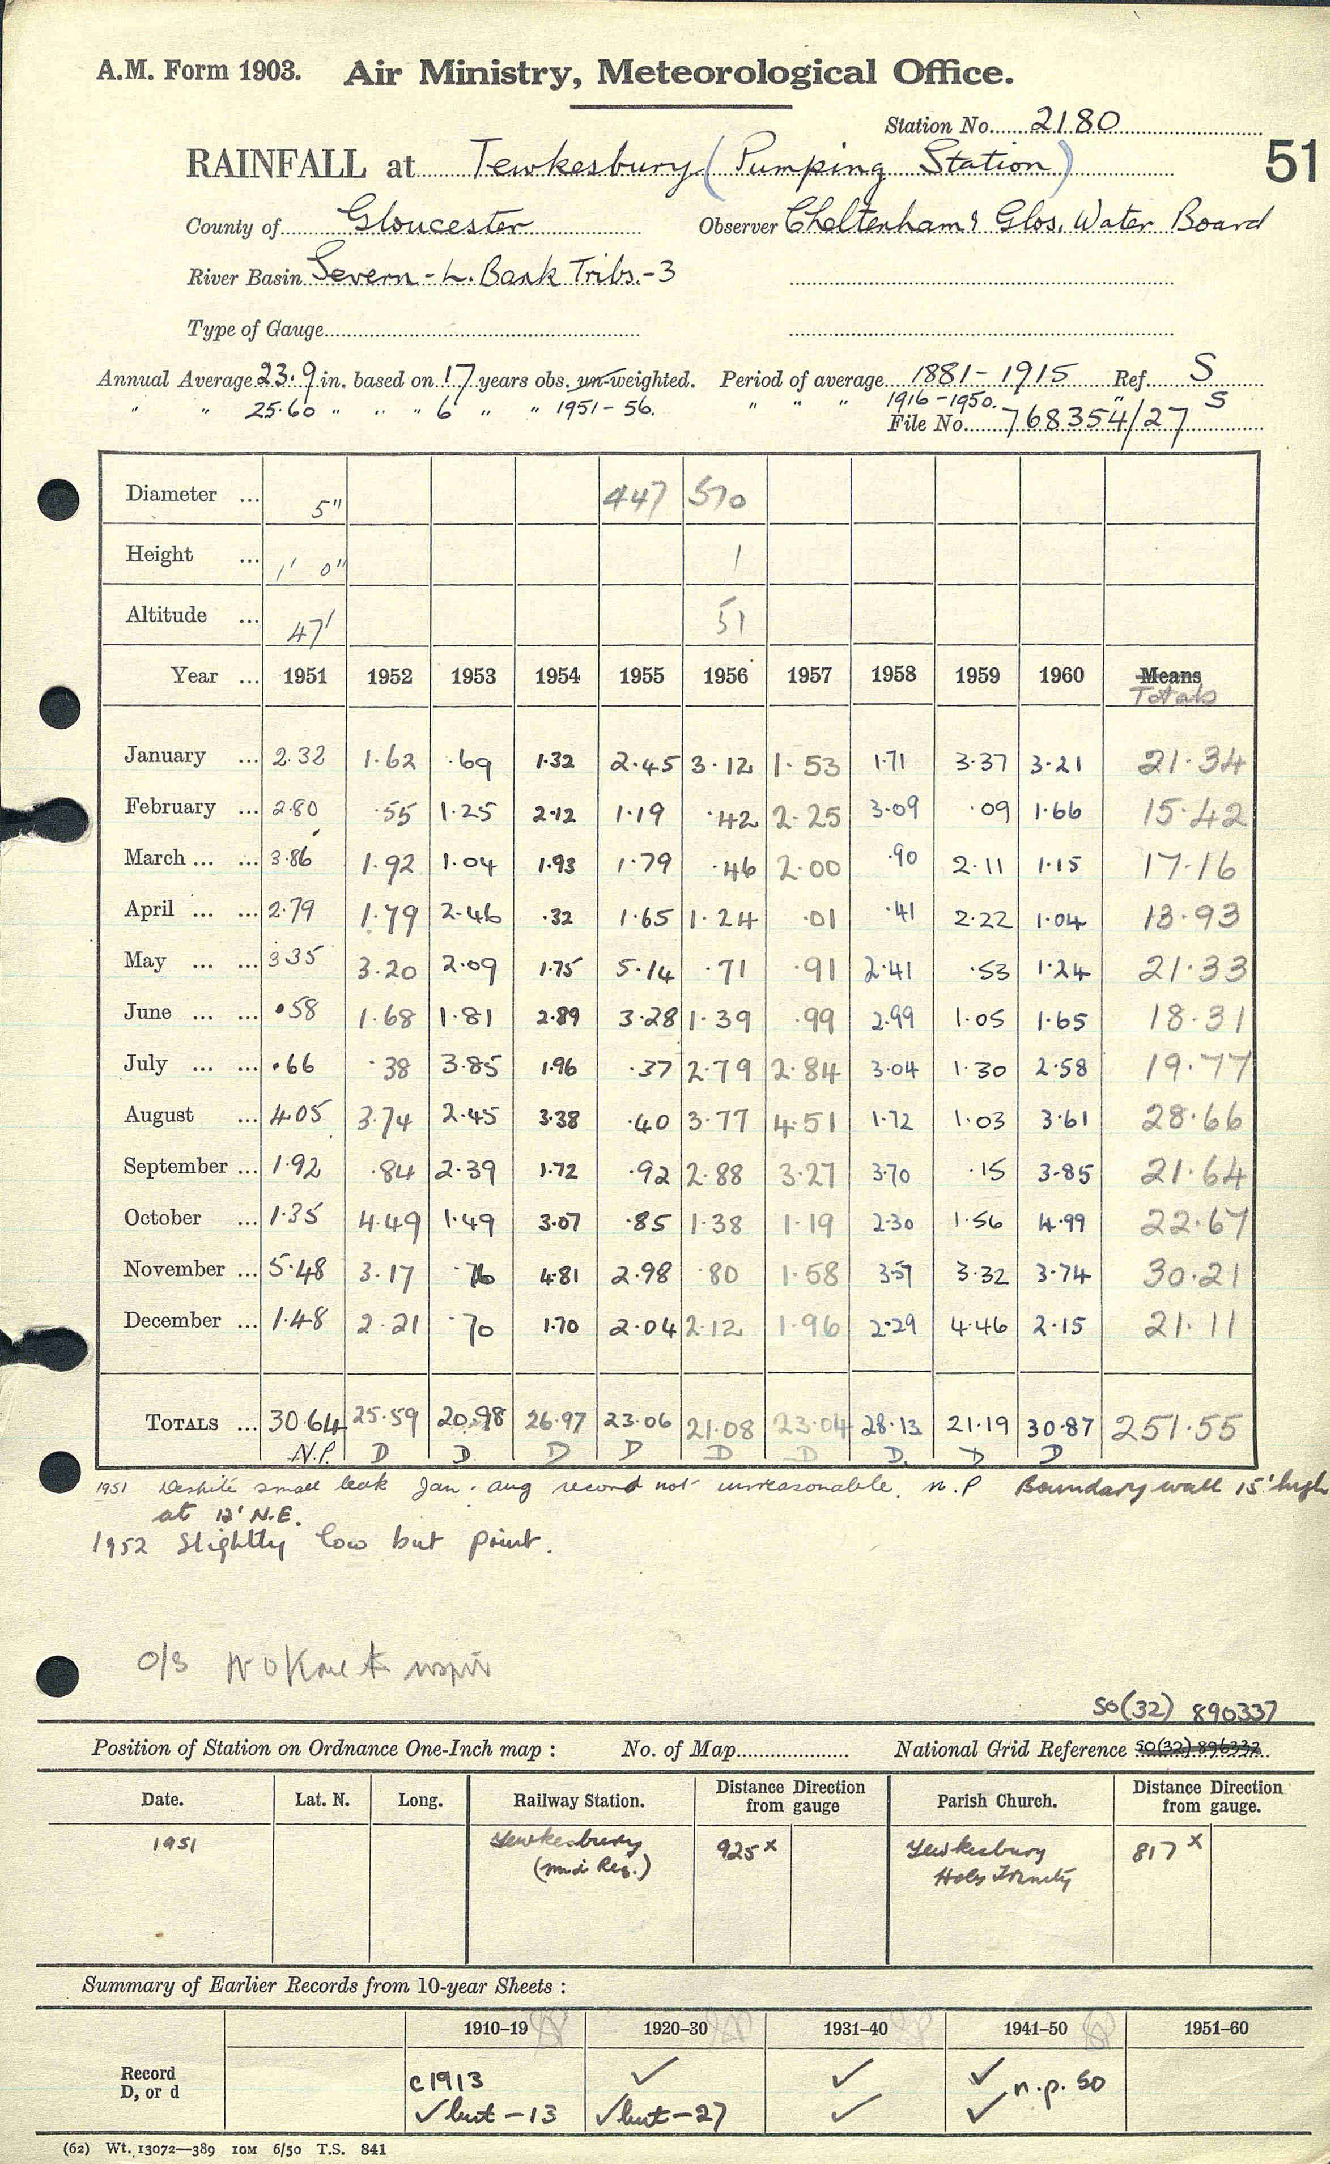 A.M. Form 1903. Air Ministry, Meteorological Office.
Station No. 2180
RAINFALL at Tewkesbury (Pumping Station) 51
County of Gloucester Observer Cheltenham & Glos. Water Board
River Basin Severn - L. Bank Tribs. - 3
Type of Gauge
Annual Average 23.9 in. based on 17 years obs. un-weighted. Period of average 1881 - 1915 Ref. S
" " 25.60 " " " 6 " " 1951 - 56. " " " 1916 - 1950. " S
File No. 768354/27
Diameter ... 5" 447 570
Height ... 1' 0" 1
Altitude ... 47' 51
Year ... 1951 1952 1953 1954 1955 1956 1957 1958 1959 1960 Means
Totals
January ... 2.32 1.62 .69 1.32 2.45 3.12 1.53 1.71 3.37 3.21 21.34
February ... 2.80 .55 1.25 2.12 1.19 .42 2.25 3.09 .09 1.66 15.42
March ... ... 3.86 1.92 1.04 1.93 1.79 .46 2.00 .90 2.11 1.15 17.16
April ... ... 2.79 1.79 2.46 .32 1.65 1.24 .01 .41 2.22 1.04 13.93
May ... ... 3.35 3.20 2.09 1.75 5.14 .71 .91 2.41 .53 1.24 21.33
June ... ... .58 1.68 1.81 2.89 3.28 1.39 .99 2.99 1.05 1.65 18.31
July ... ... .66 .38 3.85 1.96 .37 2.79 2.84 3.04 1.30 2.58 19.77
August ... 4.05 3.74 2.45 3.38 .40 3.77 4.51 1.72 1.03 3.61 28.66
September ... 1.92 .84 2.39 1.72 .92 2.88 3.27 3.70 .15 3.85 21.64
October ... 1.35 4.49 1.49 3.07 .85 1.38 1.19 2.30 1.56 4.99 22.67
November ... 5.48 3.17 .76 4.81 2.98 .80 1.58 3.57 3.32 3.74 30.21
December ... 1.48 2.21 .70 1.70 2.04 2.12 1.96 2.29 4.46 2.15 21.11
TOTALS ... 30.64 25.59 20.98 26.97 23.06 21.08 23.04 28.13 21.19 30.87 251.55
N.P. D D D D D D D. D D
1951 Despite small leak Jan - Aug record not unreasonable. n.P Boundary wall 15' high
at 12' N.E.
1952 Slightly low but print.
O/S
SO(32) 890337
Position of Station on Ordnance One-Inch map : No. of Map National Grid Reference SO(32) 896332
Date. Lat. N. Long. Railway Station. Distance Direction from gauge Parish Church. Distance Direction from gauge.
1951 Tewkesbury 925 x Tewkesbury 817 x
(Mid Reg.) Holy Trinity
Summary of Earlier Records from 10-year Sheets :
1910-19 1920-30 1931-40 1941-50 1951-60
Record D, or d c1913 ✓ ✓ ✓ n.p. 50
✓ but - 13 ✓ but - 27 ✓ ✓
(62) Wt. 13072—389 10M 6/50 T.S. 841